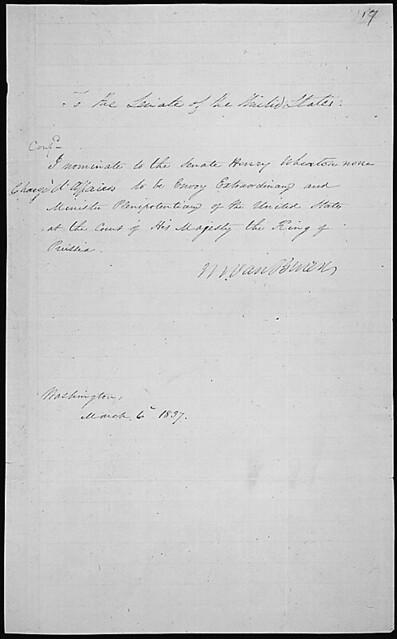 19
To the Senate of the United States.
Conf.d
I nominate to the Senate Henry Wheaton now
Chargé d'Affaires to be Envoy Extraordinary and
Minister Plenipotentiary of the United States
at the Court of His Majesty the King of
Prussia.
M. Van Buren
Washington,
March 6th 1837.